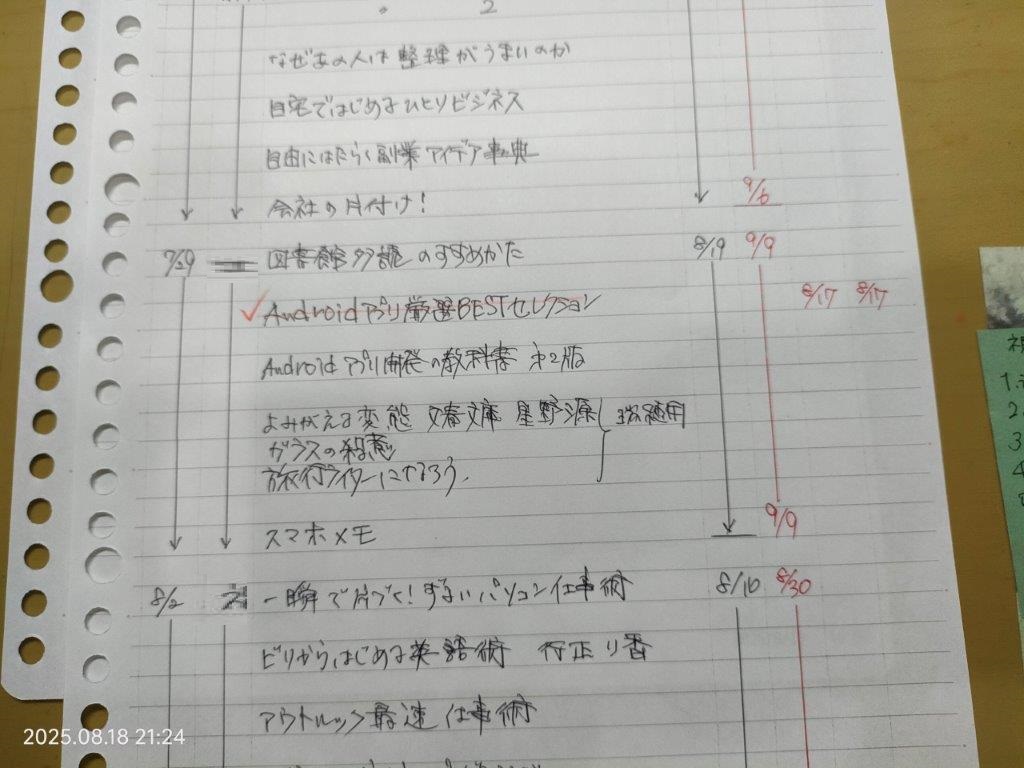 2
なぜあの人は整理がうまいのか
自宅ではじめるひとりビジネス
自由にはたらく副業アイデア事典
9/6
会社の片付け!
7/29 図書館多読のすすめかた 8/19 9/9
Androidアプリ厳選BESTセレクション 8/17 8/17
Androidアプリ開発の教科書 第2版
よみがえる変態 文春文庫 星野源
ガラスの殺意
旅行ライターになろう.
スマホメモ 9/9
8/2 一瞬で片づく!ずるいパソコン仕事術 8/16 8/30
ビリからはじめる英語術 行正り香
アウトルック最速仕事術
1.
2
3
4
2025.08.18 21:24